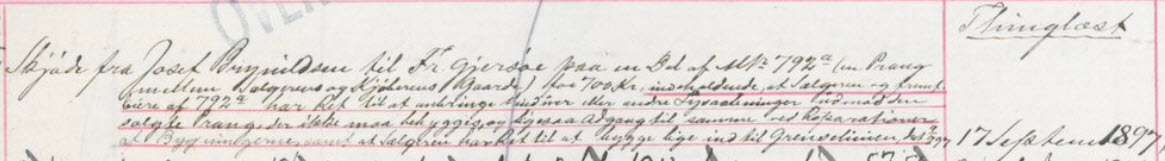 Thinglæst
Skjøde fra Josef Brynildsen til Fr. Gjersøe paa en Del af M.No 792a (en Prang
mellem Sælgerens og Kjøberens Gaarde) for 700 Kr, indeholdende, at Sælgeren og fremt.
Eiere af 792a har Ret til at anbringe Vinduer eller andre Lysaabninger ud mod den
solgte Prang, der ikke maa bebygges, og ligesaa Adgang til samme ved Reparationer
af Bygningerne, samt at Sælgeren har Ret til at bygge lige ind til Grendselinien, dat.
17 September 1897